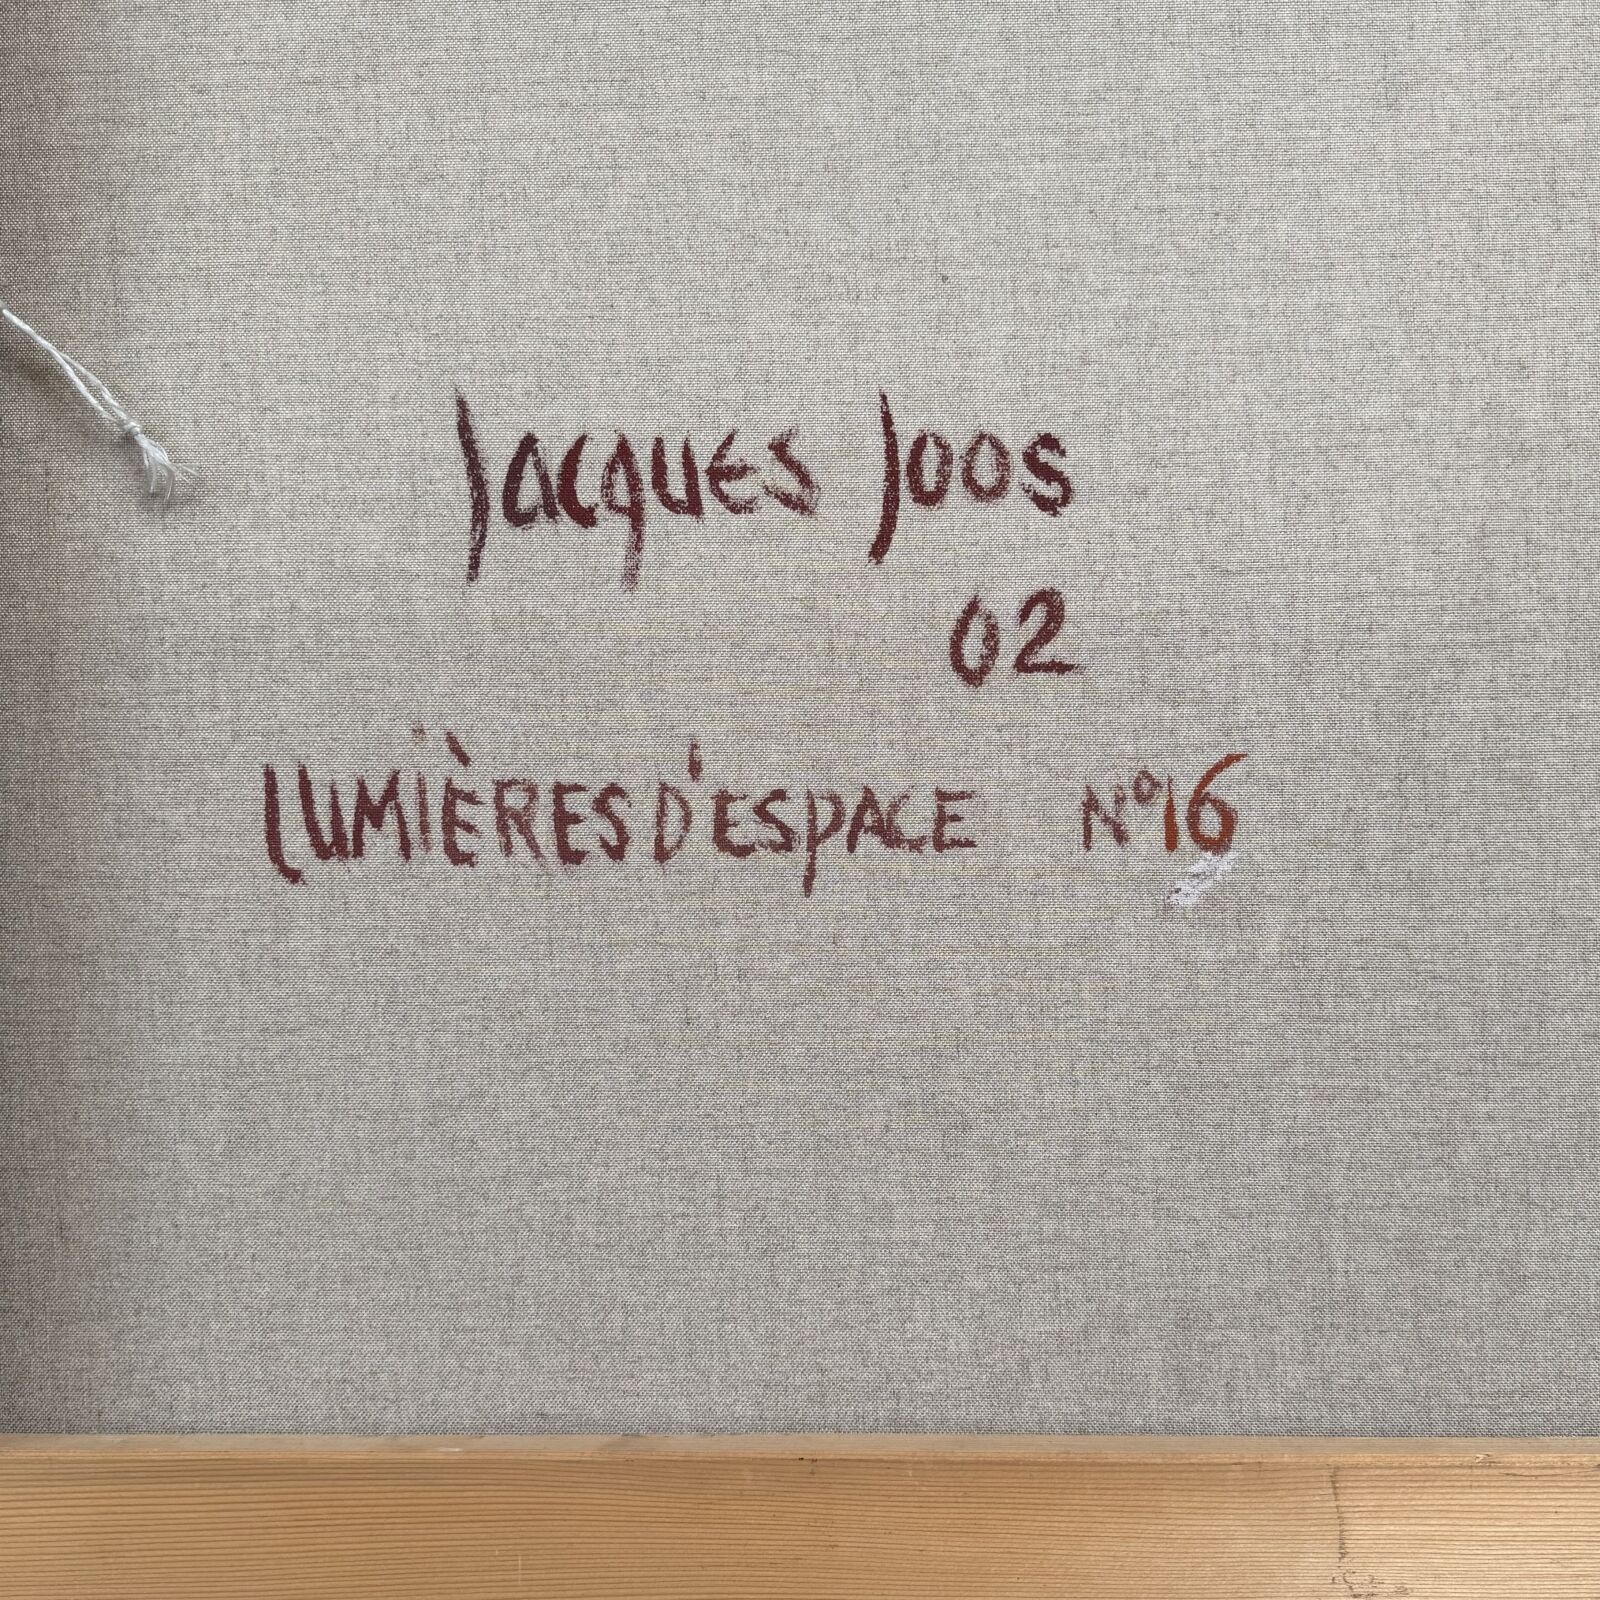 Jacques Joos
02
LUMIÈRES D'ESPACE N°16